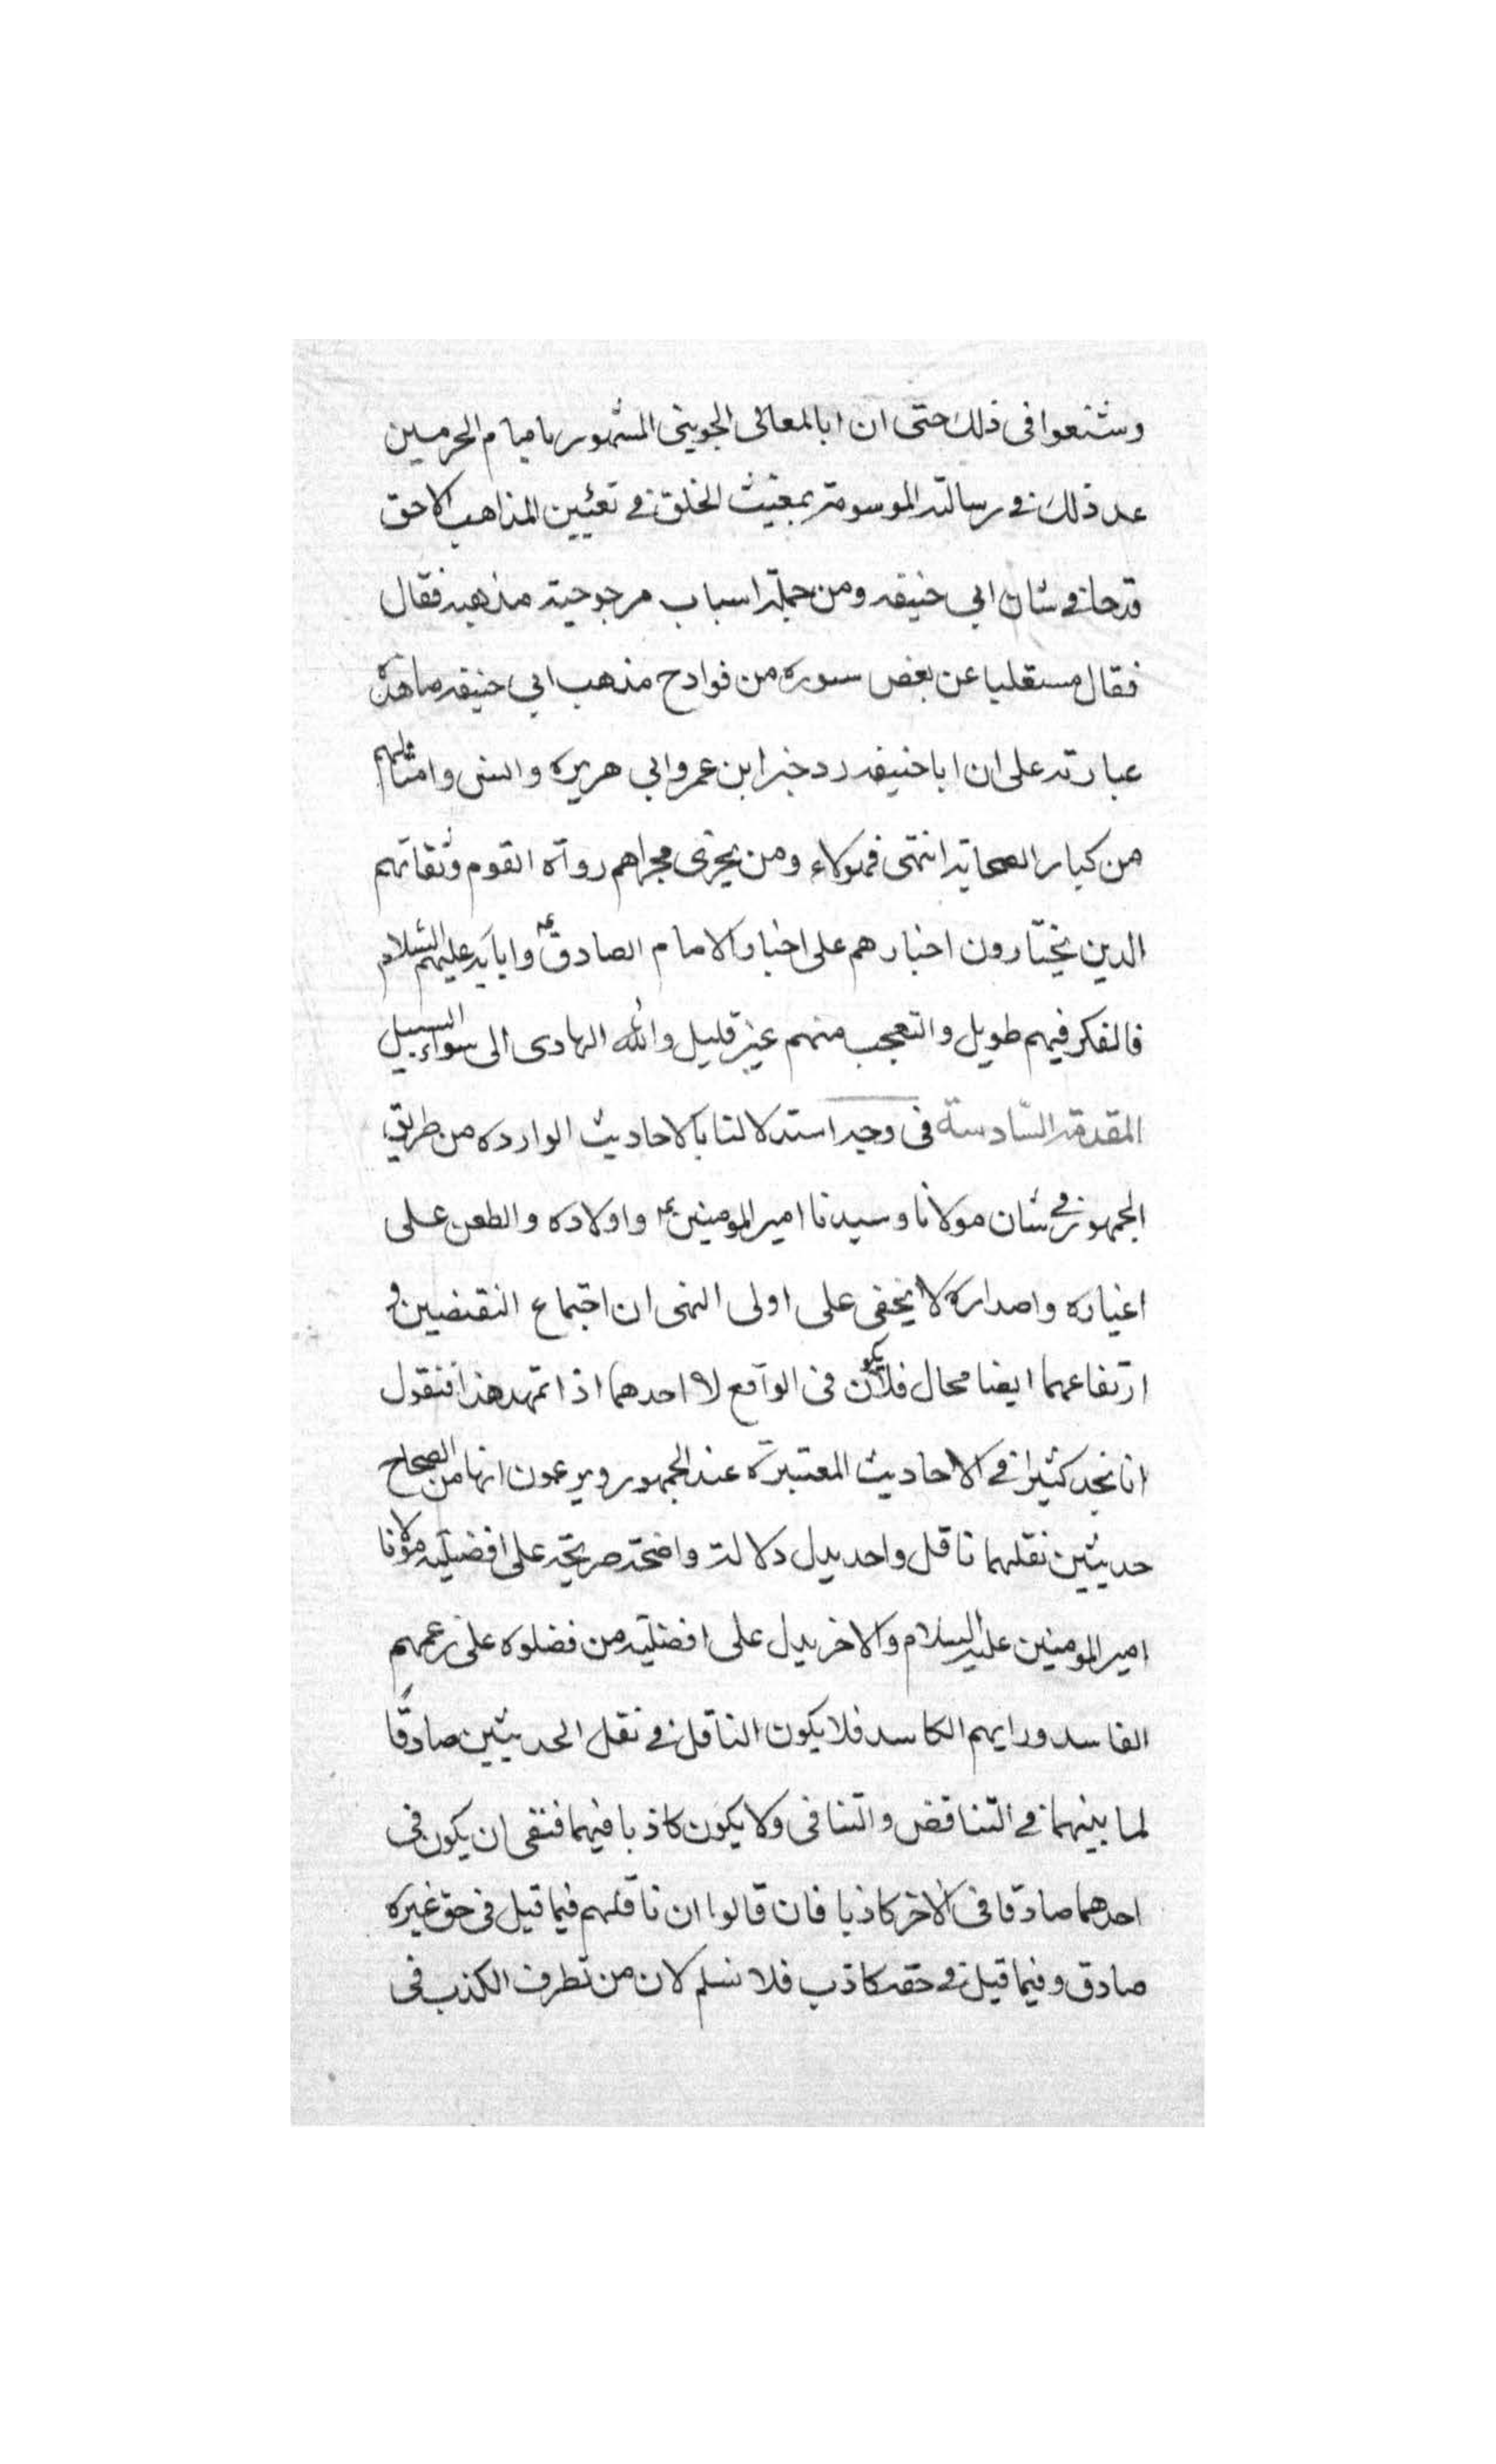 وشنعوا في ذلك حتى ان ابا المعالى الجوينى المشهور بامام الحرمين
عد ذلك في رسالته الموسومة بمغيث الخلق في تعيين المذاهب الاحق
قدحا في شان ابي حنيفه ومن جملة اسباب مرجوحية مذهبه فقال
فقال مستقليا عن بعض سوره من قوادح مذهب ابي حنيفه ما هذه
عبارته على ان ابا حنيفه رد خبر ابن عمر وابي هريره وانس وامثالهم
من كبار الصحابة انتهى فهولاء ومن يجرى مجراهم رواة القوم وثقاتهم
الدين يختارون اخبارهم على اخبار الامام الصادق ع وابايه عليهم السلام
فالفكر فيهم طويل والتعجب منهم غير قليل والله الهادى الى سواء السبيل
المقدمة السادسة فى وجه استدلالنا بالاحاديث الوارده من طريق
الجمهور في شان مولانا وسيدنا امير المومنين ع واولاده والطعن على
اغياره واصداره لا يخفى على اولى النهى ان اجتماع النقضين و
ارتفاعهما ايضا محال فلا يكون فى الواقع الا احدهما اذا تمهد هذا فنقول
انا نجد كثيرا في الاحاديث المعتبرة عند الجمهور ويزعمون انها من الصحاح
حديثين نقلهما ناقل واحد يدل دلالة واضحة صريحة على افضلية مولانا
امير المومنين عليه السلام والاخر يدل على افضلية من فضلوه على زعمهم
الفاسد ورايهم الكاسد فلا يكون الناقل في نقل الحديثين صادقًا
لما بينهما في التناقض والتنافى ولا يكون كاذبا فيهما فنقى ان يكون فى
احدهما صادقا فى الاخر كاذبا فان قالوا ان ناقلهم فيما قيل فى حق غيره
صادق وفيما قيل في حقه كاذب فلا نسلم لان من تطرف الكذب فى